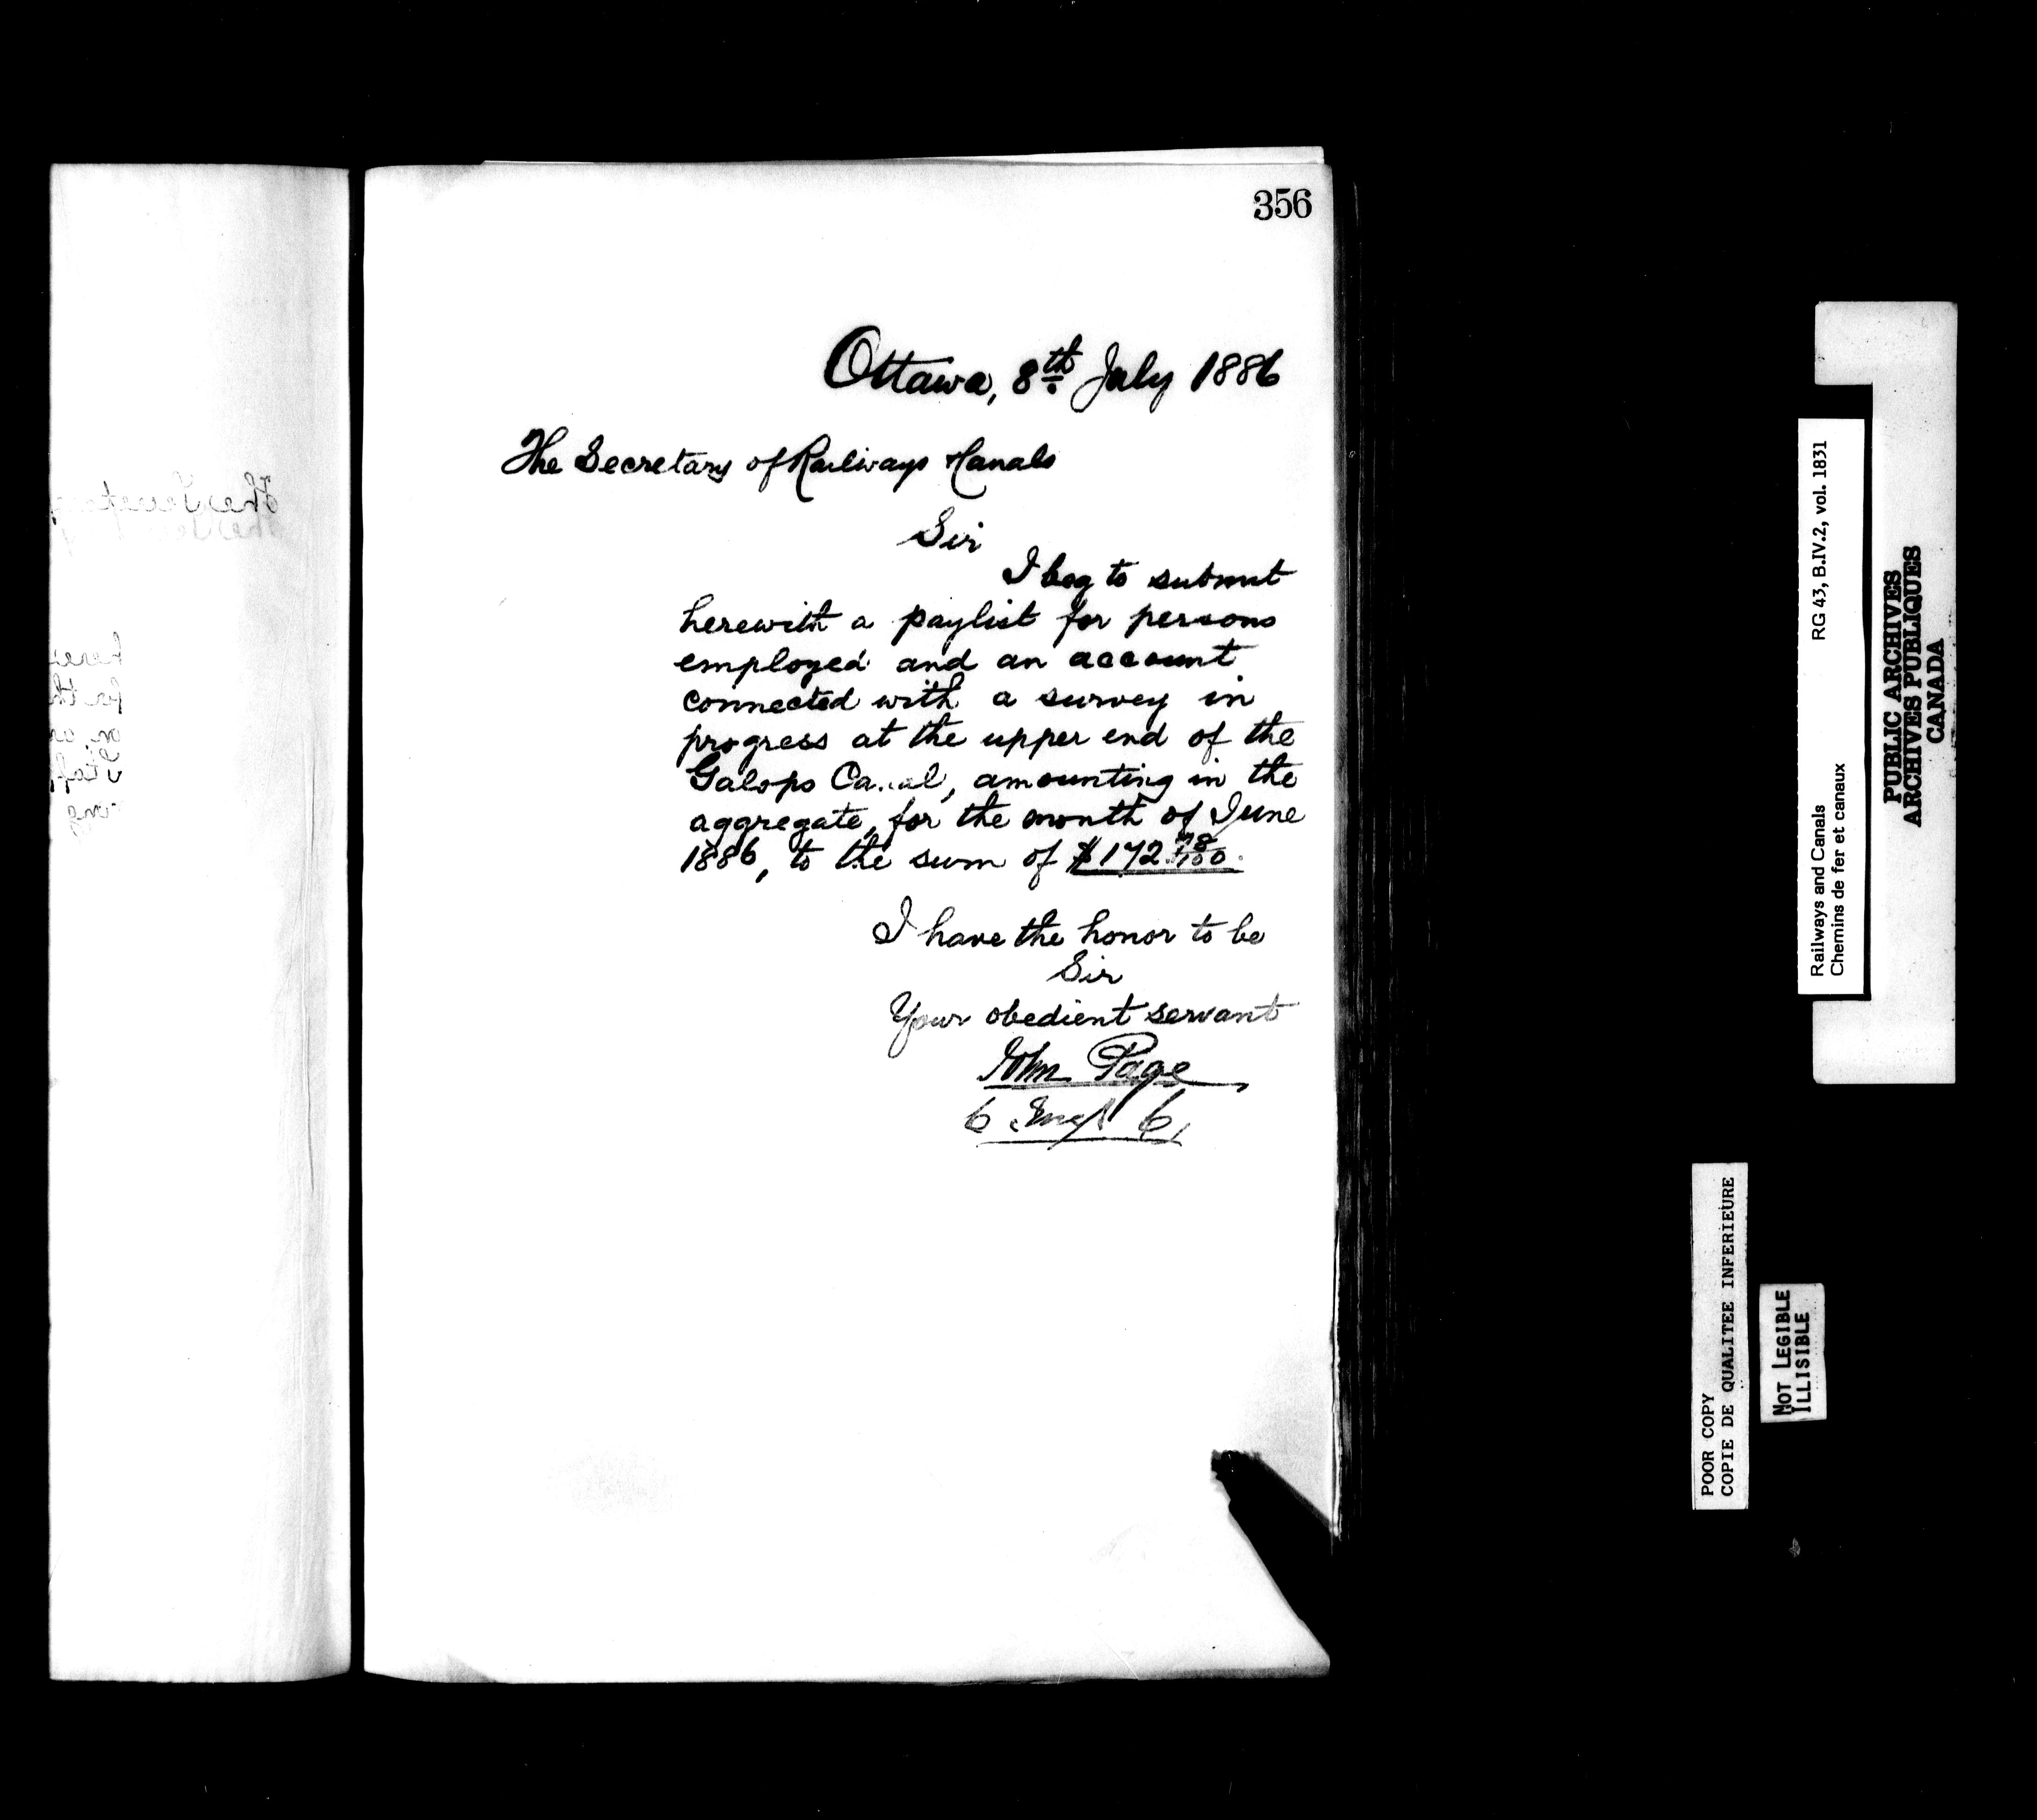 356
Ottawa, 8th July 1886
The Secretary of Railways & Canals
Sir
I beg to submit
herewith a paylist for persons
employed and an account
connected with a survey in
progress at the upper end of the
Galops Canal, amounting in the
aggregate, for the month of June
1886, to the sum of $172.78/100.
I have the honor to be
Sir
Your obedient servant
John Page
C Engr C
Railways and Canals RG 43, B.IV.2, vol. 1831
Chemins de fer et canaux
PUBLIC ARCHIVES
ARCHIVES PUBLIQUES
CANADA
POOR COPY
COPIE DE QUALITEE INFERIEURE
NOT LEGIBLE
ILLISIBLE